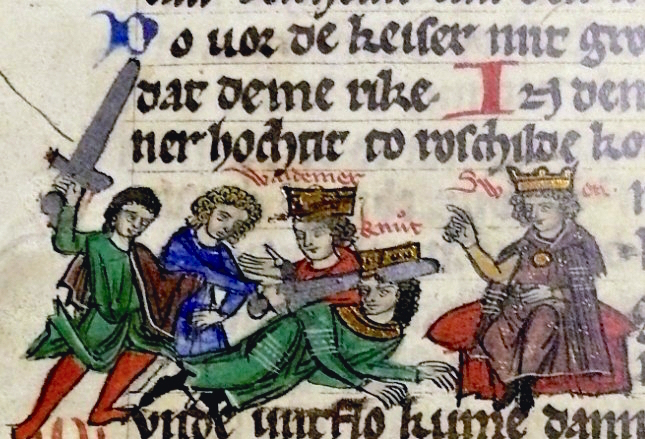 Do uor de keiser mit gro
dat deme rike. In den
ner hochtit to roschilde ko
waldemer
Sw en
knut
vnde vntflo kume dann